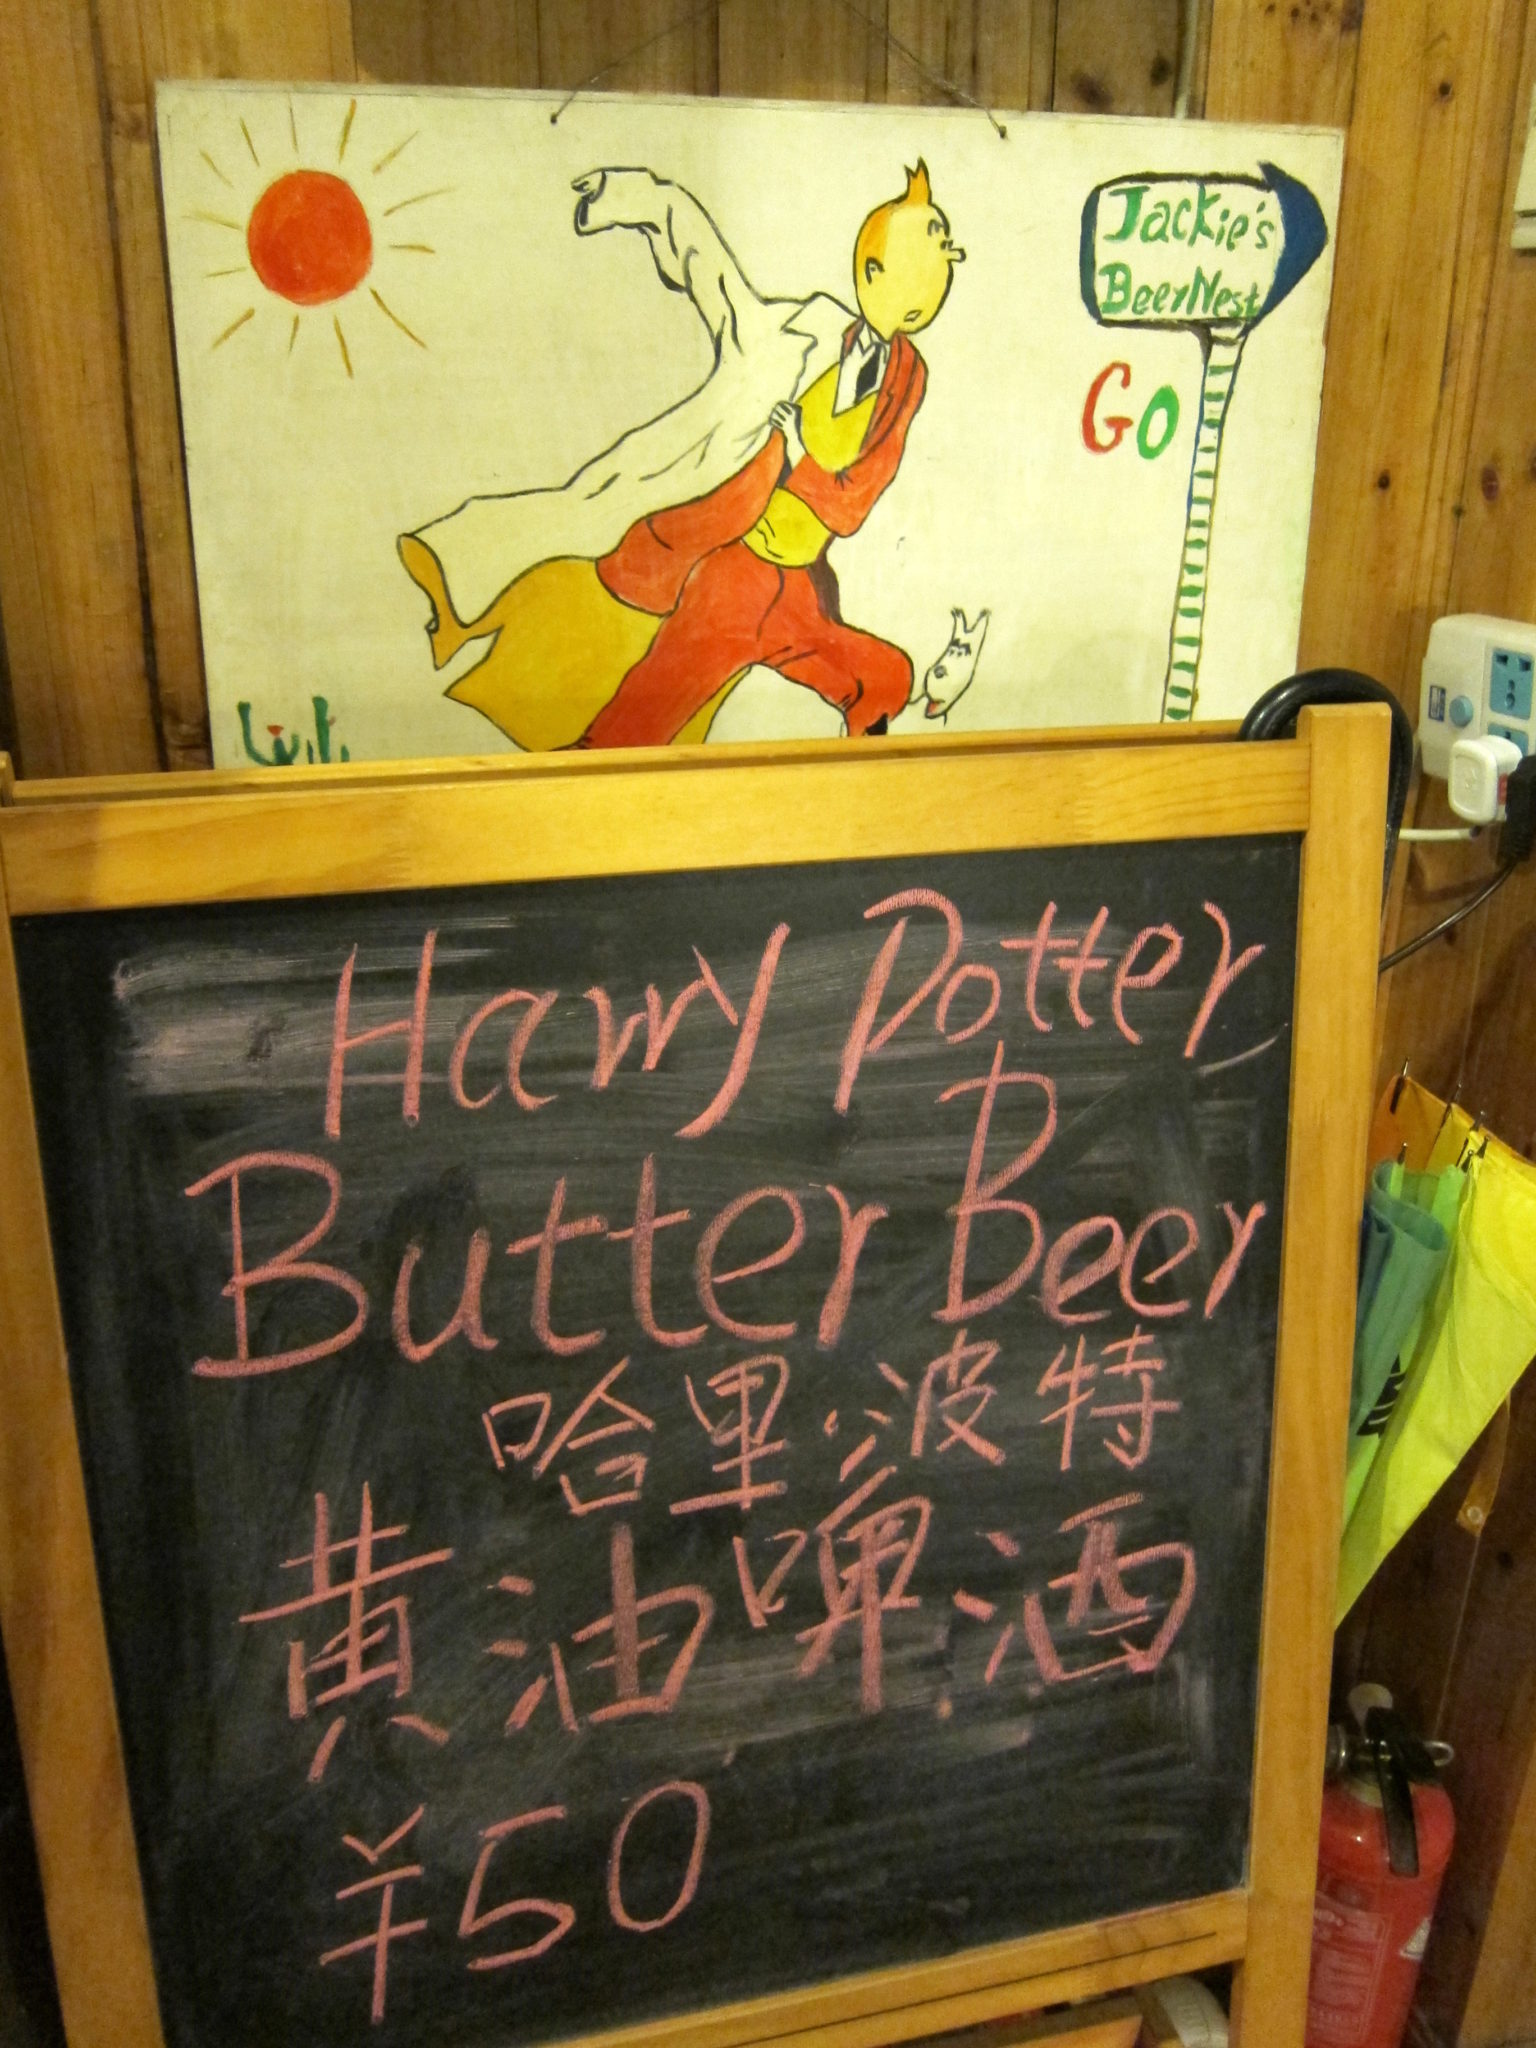 Jackie's
BeerNest
GO
Harry Potter
Butter Beer
哈里·波特
黄油啤酒
¥50